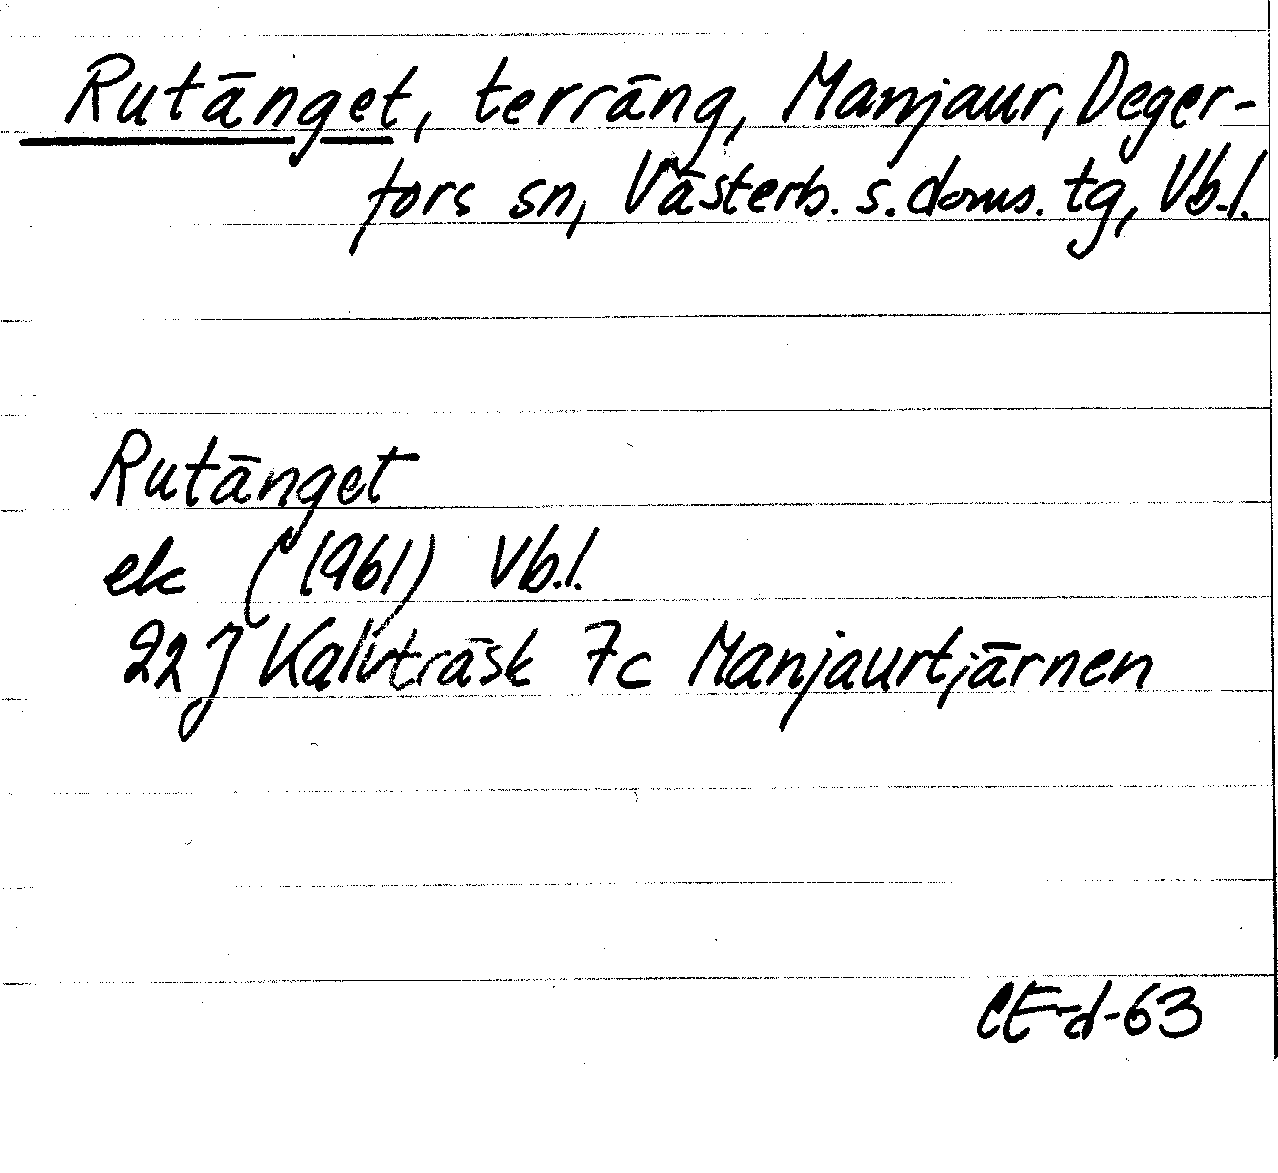 Rutänget, terräng, Manjaur, Deger-
fors sn, Västerb. s. doms. tg, Vb.l.
Rutänget
ek (1961) Vb.l.
22 J Kalvträsk 7c Manjaurtjärnen
CE-d-63